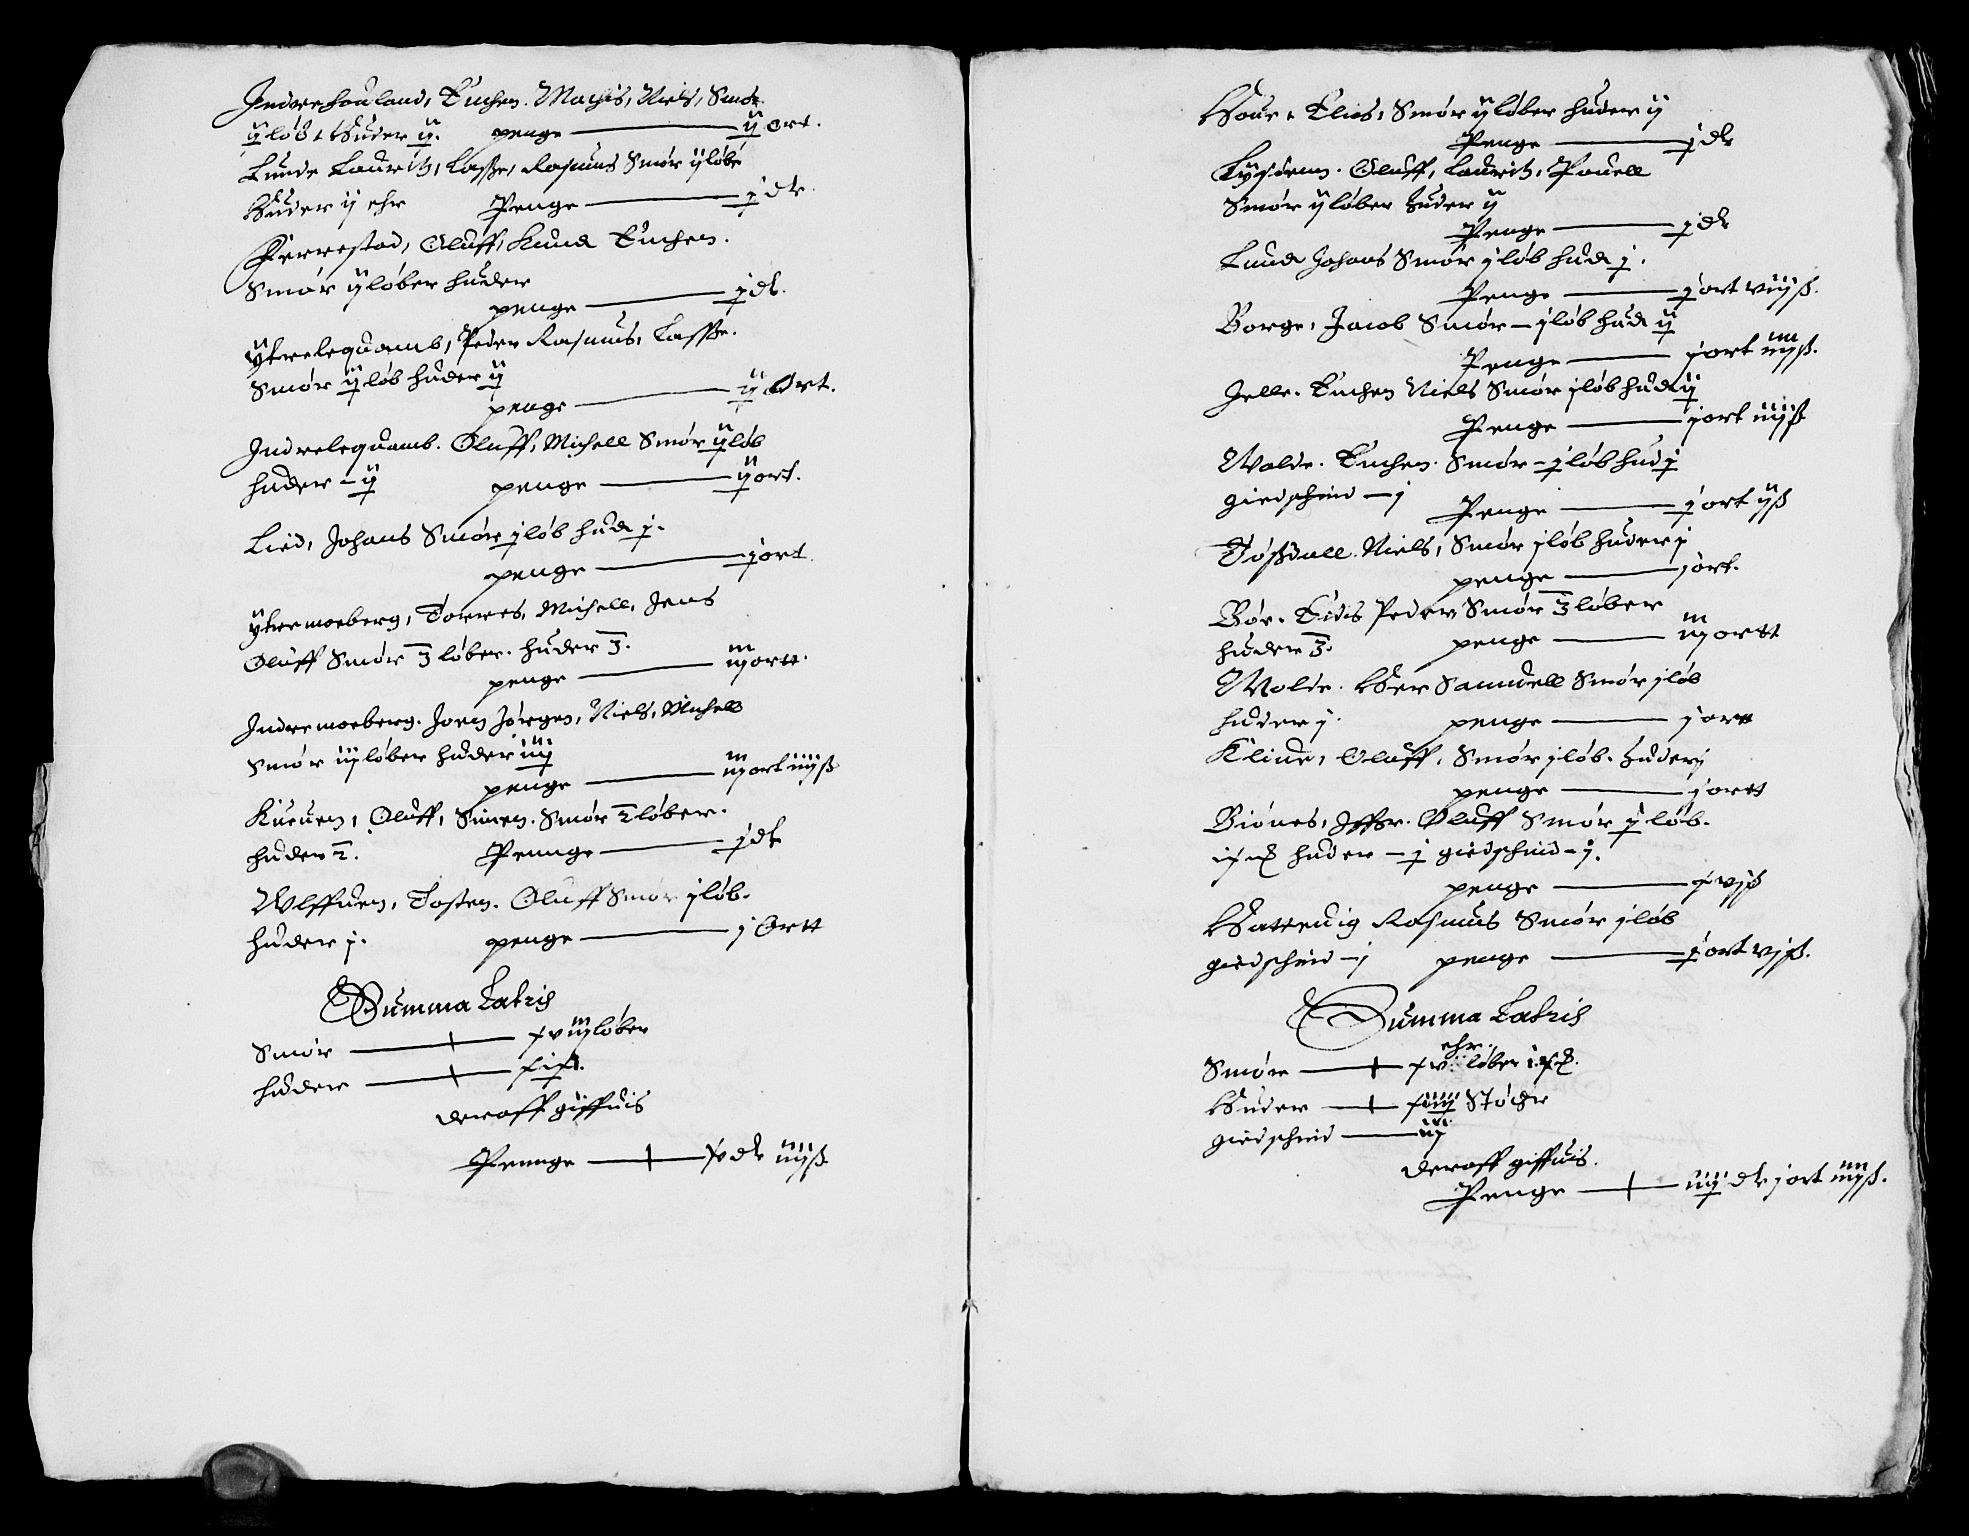 Indrehouland, Enchen. Machis, Niels, Smør
ij løb + Huder ij. penge — ij ort.
Lunde Lauritz, Lasse, Rasmus Smør ij løbe
Huder ij ehr Penge — j dr.
Kerrestad, Oluff, Knud Enchen.
Smør ij løber huder
penge — j dr.
Ytrelequamb, Peder Rasmus, Lasse.
Smør ij løb huder ij
penge — ij Ort.
Indrelequamb. Oluff, Michell Smør ij løb
huder – ij penge — ij ort.
Lied, Johans Smør j løb hud j.
penge — j ort
Ytre moeberg, Torres, Michell, Jens
Oluff Smør 3 løber. huder 3.
penge — iij ortt.
Indre moeberg. Joen Jørgen, Niels, Michell
Smør iij løber huder iiij
penge — iij ort iiij ß
Oluff, Simen. Smør 2 løber.
huder 2. Pennge — j dr
Tosten. Oluff Smør j løb.
huder j. penge — j Ortt
Summa Latris
Smør — xviij løber
huder — xix.
deraff giffuis
Pennge — dr iiij ß
Houe + Elias, Smør ij løber huder ij
Penge — j dr
Oluff, Lauritz, Pouell
Smør ij løber huder ij
Penge — j dr
Lund Johans Smør j løb hud j.
Penge — j ort viij ß.
Borge, Jacob Smør – j løb hud ij
Penge — j ort iiij ß.
Jelle. Enchen Niels Smør j løb hud ij
Penge — j ort iiij ß
Wolde. Enchen. Smør – j løb hud j
giedschind – j Penge — j ort ij ß
Tøssdall. Niels, Smør j løb huder j
penge — j ort.
Bør. Peder Smør 3 løber
huder 3. penge — iij ortt
Molde. Her Samuell Smør j løb
huder j. penge — j ortt
Kline, Oluff, Smør j løb. huder j
penge — j ortt
Oluff Smør j løb.
huder – j giedschind – j.
penge — xvj ß
Hattenig Rasmus Smør j løb
giedschind – j penge — j ort vj ß.
Summa Latris
ehr.
Smør — løber
Huder — støcher
giedschind — iij
deraff giffuis.
Penge — iiij dr j ort iiij ß.